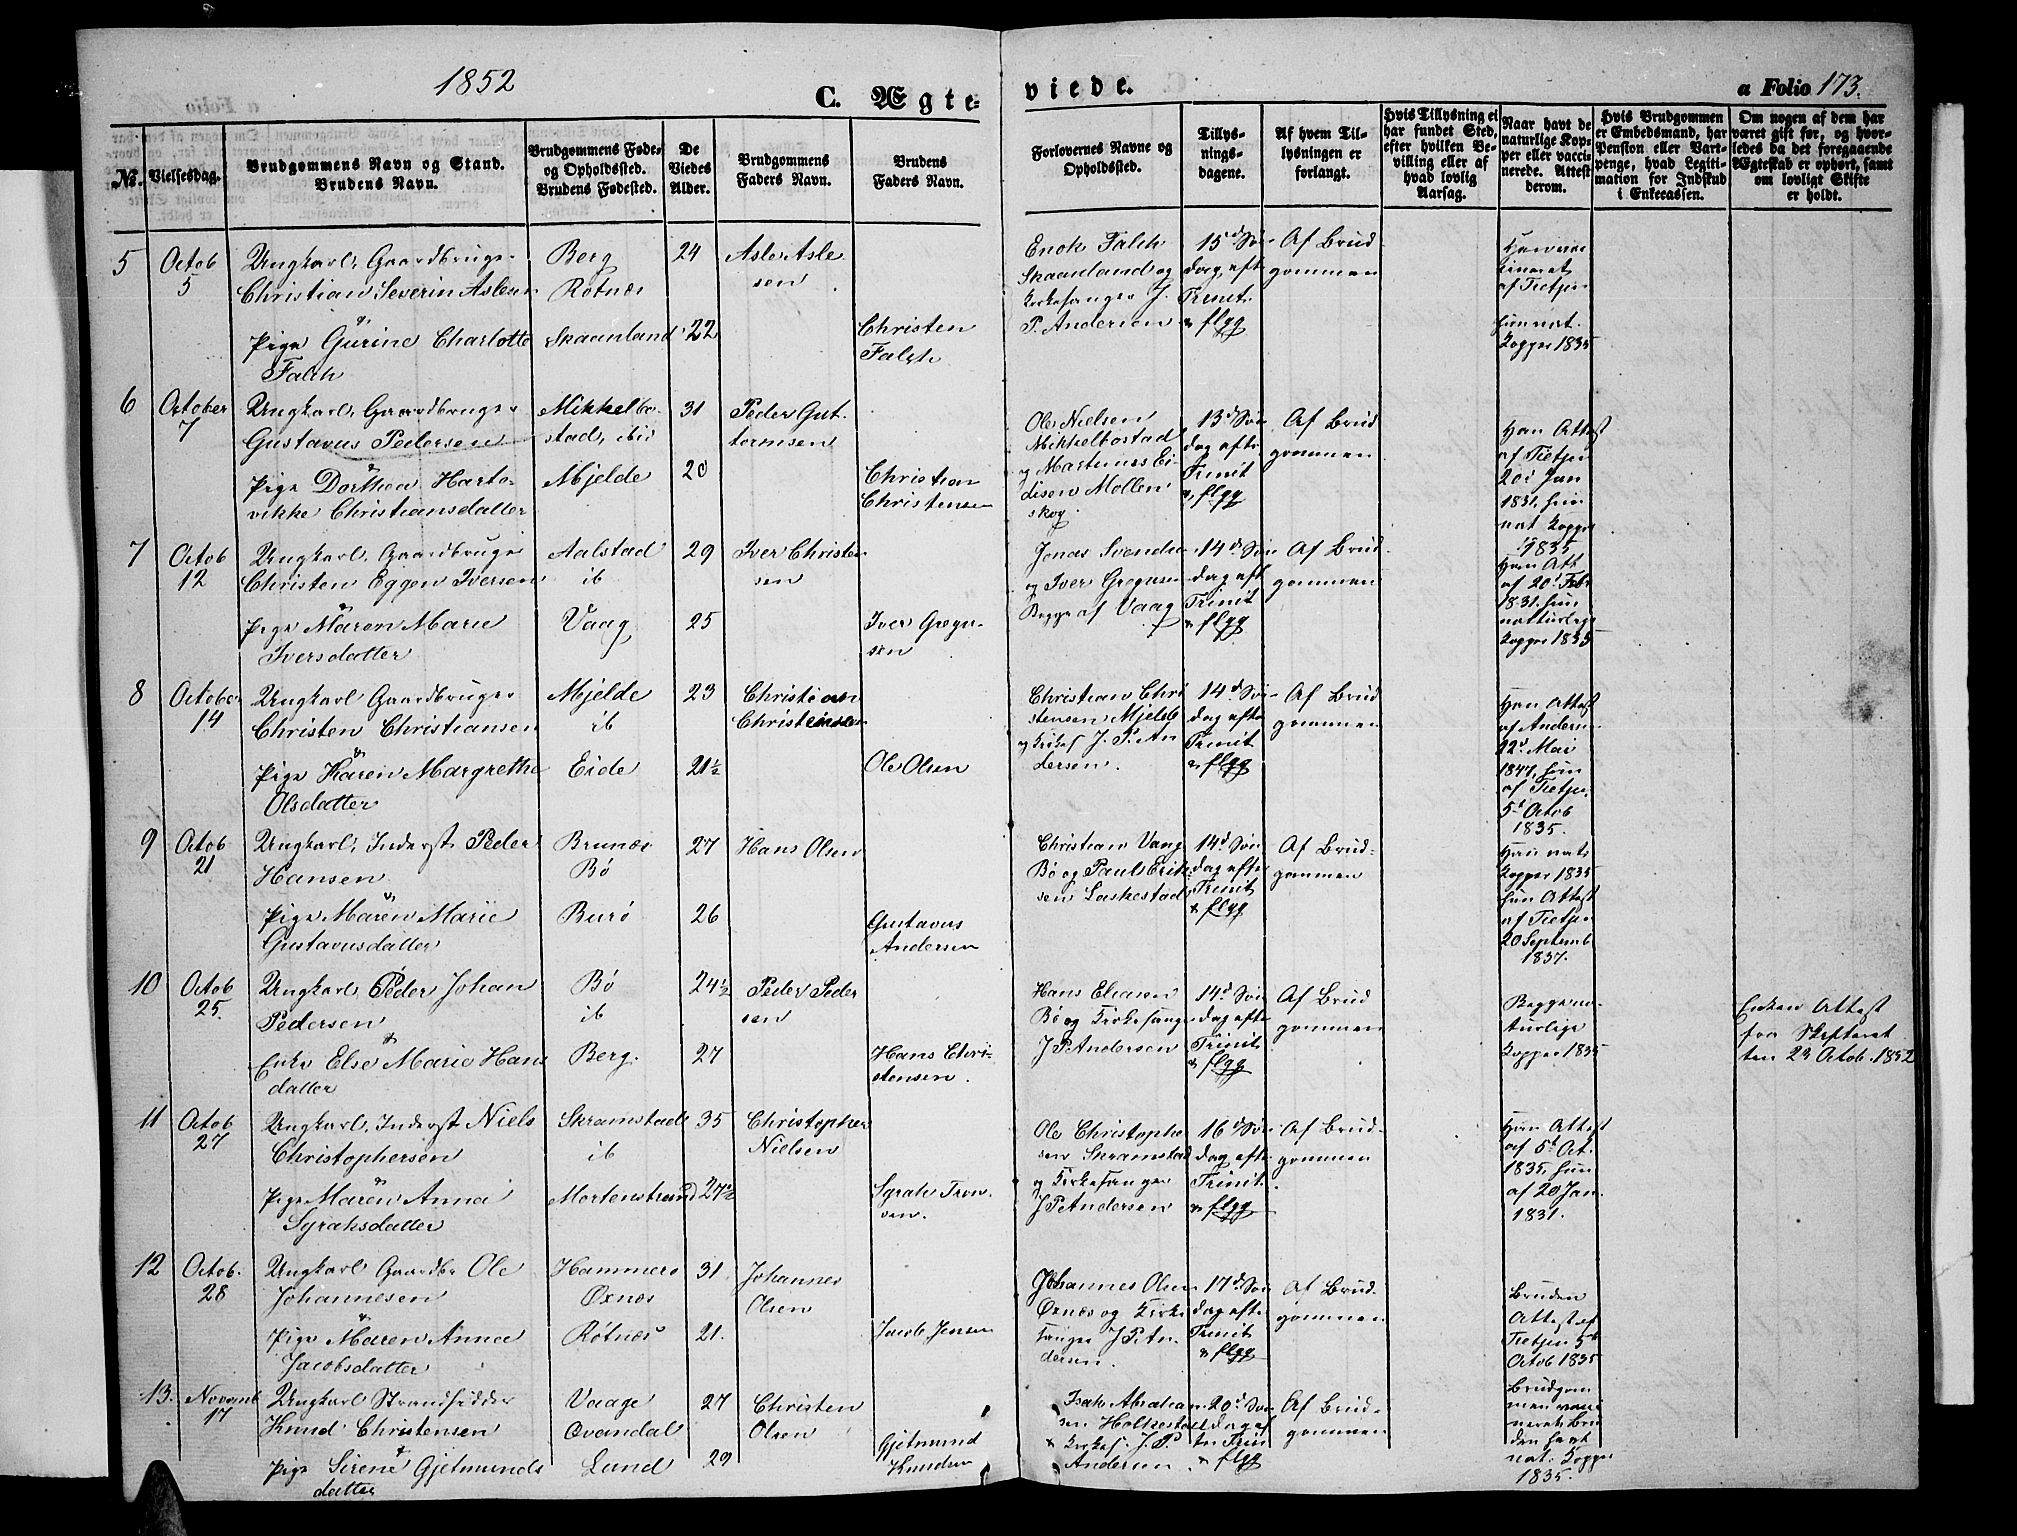 1852
C. Ægte-
viede.
a Folio 173.
No.
Vielsesdag.
Brudgommens Navn og Stand.
Brudens Navn.
Brudgommens Føde-
og Opholdssted.
Brudens Fødested.
De
Viedes
Alder.
Brudgommens
Faders Navn.
Brudens
Faders Navn.
Forlovernes Navne og
Opholdssted.
Tillys-
nings-
dagene.
Af hvem Til-
lysningen er
forlangt.
Hvis Tillysning ei
har fundet Sted,
efter hvilken Be-
villing eller af
hvad lovlig
Aarsag.
Naar havt de
naturlige Kop-
per eller vacci-
nerede. Attest
derom.
Hvis Brudgommen
er Embedsmand, har
Pension eller Vart-
penge, hvad Legiti-
mation for Indskud
i Enkecassen.
Om nogen af dem har
været gift før, og hvor-
ledes da det foregaaende
Ægteskab er ophørt, samt
om lovligt Skifte
er holdt.
5
Octob
5
Ungkarl, Gaardbruger
Christian Severin Aslesen
&
Pige Gurine Charlotte
Falch
Berg
Rotnæs
Skaanland
24
22
Asle Asle
sen
Christen
Falch
Enok Falch
Skaanland og
Kirkesanger J.
P. Andersen
15d Søn
dag eft
Trinit
& flgg
Af Brud
gommen
af Tietjen
hun nat.
Kopper 1835
6
October
7
Ungkarl, Gaardbruger
Gustavus Pedersen
&
Pige Dorthea Harto-
vikke Christiansdatter
Mikkelbo-
stad, ibid
Mjelde
31
20
Peder Gut-
tormsen
Christian
Christensen
Ole Nielsen
Mikkelbostad
og Martinus Ei
disen Mollen
skog
13d Søn
dag efte
Trinit
& flgg
Af Brud
gommen
Han Attest
af Tietjen
20d Jan
1831, hun
nat Kopper
1835
7
Octob
12
Ungkarl, Gaardbruger
Christen Eggen Iversen
&
Pige Maren Marie
Iversdatter
Aalstad
ib
Vaag
29
25
Iver Christen
sen
Iver Gregu-
sen
Jonas Svends
og Iver Gregusen
Begge af Vaag
14d Søn
dag eft
Trinit
& flgg
Af Brud-
gommen
Han Att
af 20d Feb
1831. hun
natturlige
Kopper 1835
8
October
14
Ungkarl Gaardbruger
Christen Christiansen
&
Pige Karen Margrethe
Olsdatter
Mjelde
ib
Eide
23
21½
Christian
Christensen
Ole Olsen
Christian Chri
stensen Mjelde
og Kirkes J. P. An
dersen.
14d Søn
dag efte
Trinit
& flgg
Af Brud
gommen
Han Attest
af Andersen
22d Mai
1847, hun
af Tietjen
5t Octob
1835.
9
Octob
21
Ungkarl, Inderst Peder
Hansen
&
Pige Maren Marie
Gustavusdatter
Brunæs
Bø
Burø
27
26
Hans Olsen
Gustavus
Andersen
Christian Vang
Bø og Paul Erik
sen Laskestad
14d Søn
dag efte
Trinit
& flgg
Af Brud-
gommen
Han nat
Kopper 1835
hun Attest
af Tietjen
20 Septemb
1837.
10
Octob
25.
Ungkarl, Peder Johan
Pedersen
&
Enke Else Marie Hans
datter
Bø
ib
Berg.
24½
27
Peder Peder
sen
Hans Chri-
stensen.
Hans Eliasen
Bø og Kirkesange
J P Andersen
14d Søn
dag efte
Trinit
& flgg
Af Brud
gommen
Begge na-
turlige
Kopper 1835
Enken Attest
fra Skifteret
ten 23 Octob. 1852
11
Octob
27
Ungkarl, Inderst Niels
Christophersen
&
Pige Maren Anna
Syraksdatter
Skramstad
ib
Mortenstrand
35
27½
Christopher
Nielsen
Syrak Tron
sen.
Ole Christophe
sen Skramstad
og Kirkesanger
J P Andersen
16d Søn
dag efte
Trinit.
& flgg
Af Brud-
gommen
Han Attest
af 5t Oct.
1835, hun
af 20 Jan.
1831.
12
Octob.
28
Ungkarl Gaardbr Ole
Johannesen
&
Pige Maren Anna
Jacobsdatter
Hammer
Oxnæs
Rotnæs
31
21.
Johannes
Olsen
Jacob Jensen
Johannes Olsen
Oxnæs og Kirke
sanger J P An
dersen.
17d Søn
dag efte
Trinit
& flgg
Af Brud-
gommen
Bruden
Attest af
Tietjen 5t
Octob 1835
13.
Novemb
17
Ungkarl Strandsidder
Knud Christensen
&
Pige Sirene Gjetmunds
datter
Vaage
Qvandal
Lund
27
29
Christen
Olsen
Gjetmund
Knudsen
Isak Abraham
sen Holkestad
& Kirkes. J. P
Andersen
20d Søn
dag ef
ter Trin
& flgg
Af Brud-
gommen
Brudgom
men vacci
neret, Bru
den havt
nat. Kopper
1835.